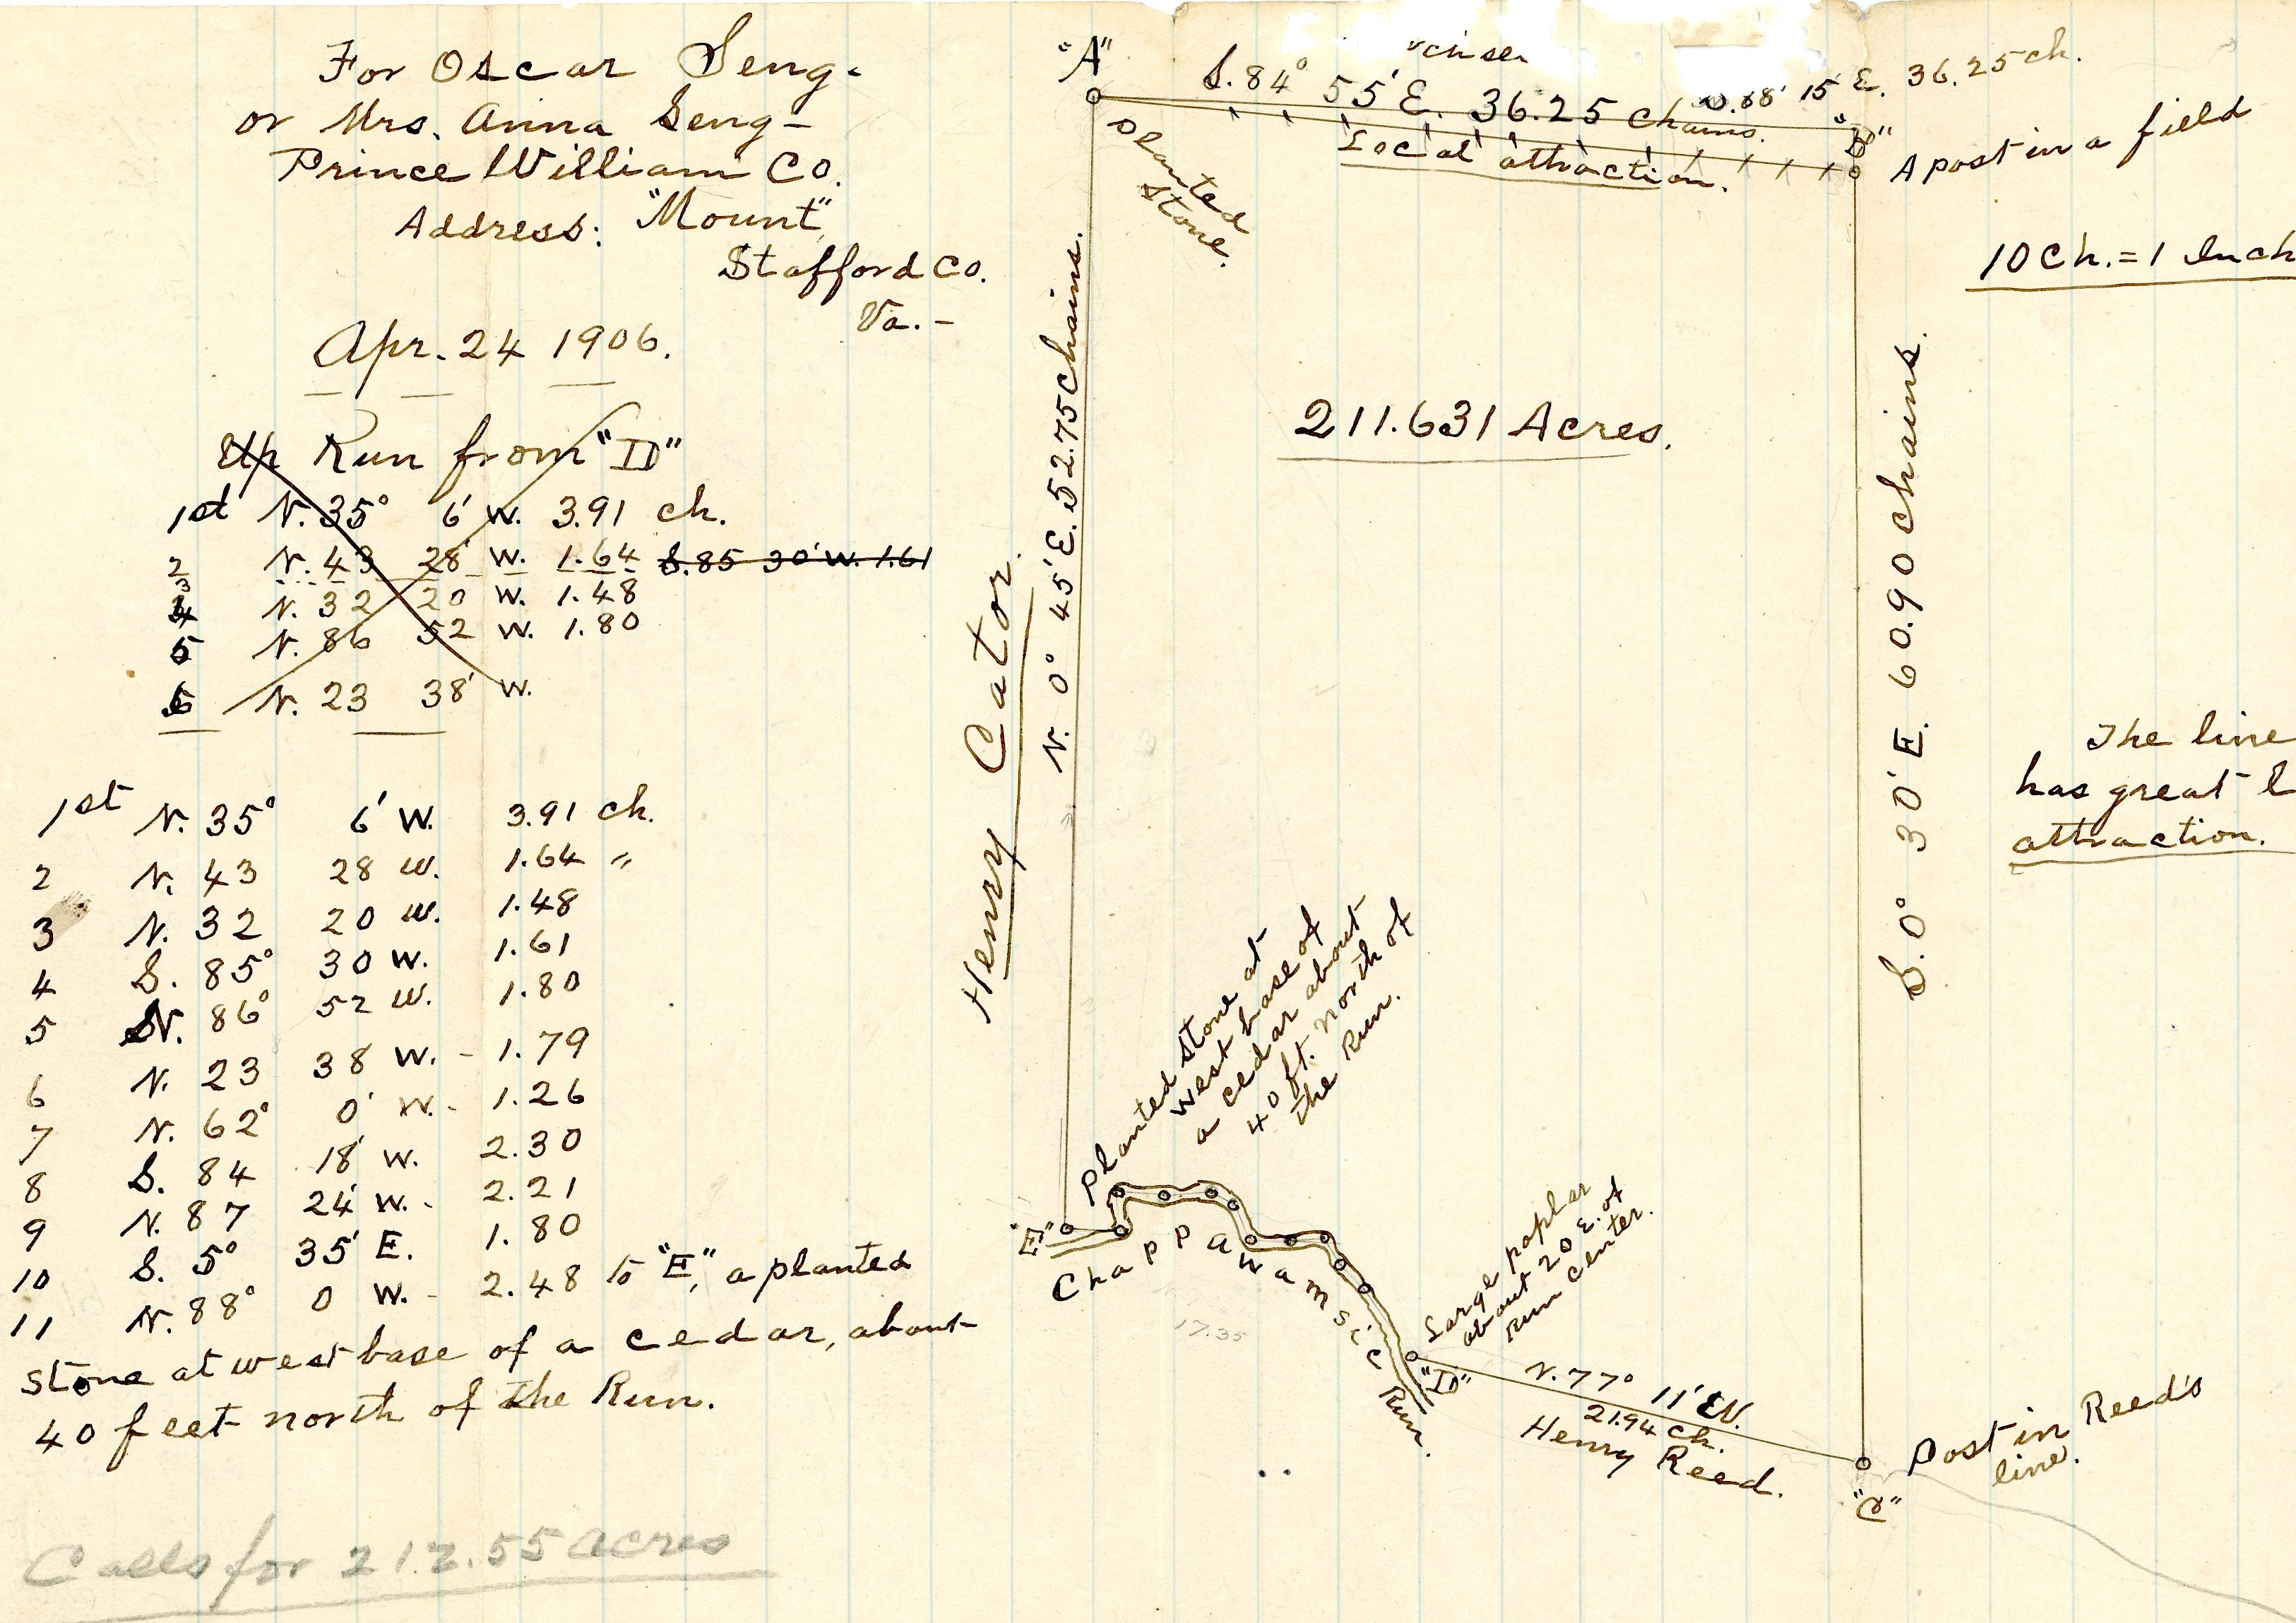 For Oscar Seng-
or Mrs. Anna Seng-
Prince William Co.
Address: "Mount",
Stafford Co.
Va.-
Apr. 24 1906.
Up Run from "D"
1st N. 35° 6' W. 3.91 ch.
2 N. 43 28' W. 1.64 S. 85 30' W. 1.61
3 N. 32 20 W. 1.48
5 N. 86 52 W. 1.80
6 N. 23 38' W.
1st N. 35° 6' W. 3.91 ch.
2 N. 43 28 W. 1.64 "
3 N. 32 20 W. 1.48
4 S. 85° 30 W. 1.61
5 N. 86° 52 W. 1.80
6 N. 23 38 W. - 1.79
7 N. 62° 0' W. - 1.26
8 S. 84 18' W. 2.30
9 N. 87 24' W. - 2.21
10 S. 5° 35' E. 1.80
11 N. 88° 0 W. - 2.48 to "E", a planted
stone at west base of a cedar, about
40 feet north of the Run.
Calls for 212.55 acres
"A"
S. 84° 55' E. 36.25 Chains.
15' E. 36.25 ch.
Local attraction.
Planted
Stone.
"B"
A post in a field
10 Ch. = 1 Inch
211.631 Acres.
Henry Cator.
N. 0° 45' E. 52.75 Chains.
S. 0° 30' E. 60.90 Chains.
The line
has great l
attraction.
Planted stone at
west base of
a cedar about
40 ft. north of
the Run.
"E"
Chappawamsic Run.
17.35
Large poplar
about 20 E. of
Run Center.
"D"
N. 77° 11' W.
21.94 Ch.
Henry Reed.
Post in Reed's
line.
"C"